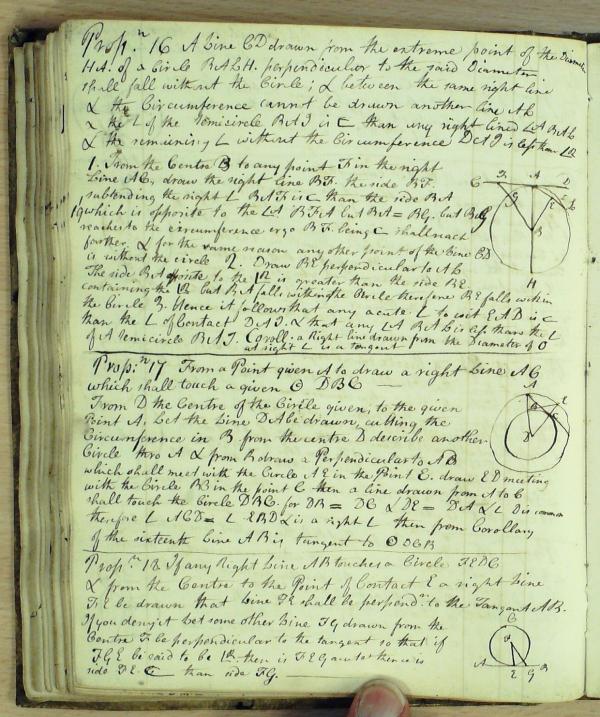 Prop:n 16 A Line CD drawn from the extreme point of the Diameter
HA of a Circle BALH perpendicular to the said Diameter
shall fall without the Circle; & between the same right line
& the Circumference cannot be drawn another line AL
& the L of the Semicircle BAI is ⊏ than any right lined LA BAL
& the remaining L without the Circumference DAI is less than
1. From the Centre B to any point F in the right
Line AC, draw the right line BF. the side BF
subtending the right L BAF is ⊏ than the side BA
which is opposite to the LA BFA but BA = BG. but BG
reaches to the circumference ergo BF being ⊏ shall reach
farther, & for the same reason any other point of the Line CD
is without the circle 2. Draw BE perpendicular to AL
The side BA opposite to the is greater than the side BE
containing the but BA falls within the Circle therefore BE falls within
the Circle 3. Hence it follows that any acute L to wit EAD is ⊏
than the L of Contact DAI. & that any LA BAL is less than the L
of A Semicircle BAI. Coroll: a Right line drawn from the Diameter of O
at right L is a Tangent
Prop:n 17 From a Point given A to draw a right Line AC
which shall touch a given ⊙ DBC
From D the Centre of the Circle given, to the given
Point A, Let the Line DA be drawn, cutting the
Circumference in B from the centre D describe another
Circle thro A & from B draw a Perpendicular to AB
which shall meet with the Circle AE in the Point E. draw ED meeting
with the Circle BC in the point C then a line drawn from A to C
shall touch the Circle DBC. for DB = DC & DE = DA & L D is common
therefore L ACD = L EBD & is a right L then from Corollary
of the sixteenth Line AB is tangent to ⊙ DCB
Prop:n 18 If any Right Line AB touches a Circle FEDC
& from the Centre to the Point of Contact E a right Line
FE be drawn that Line FE shall be perpend.r to the Tangent AB.
If you deny it Let some other Line FG drawn from the
Centre F be perpendicular to the tangent so that if
FGE be said to be then is FEG acute hence is
side FE ⊏ than side FG.
C A D
G E
B
H
A
B E
D C
C
F
A E G B